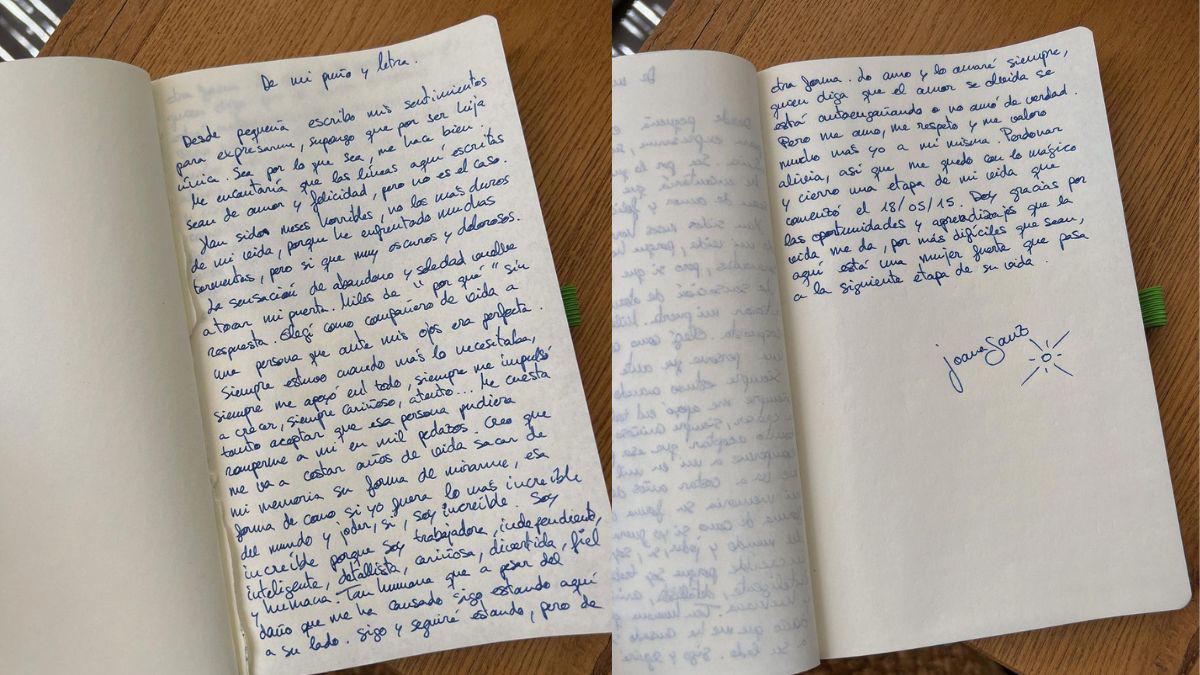 De mi puño y letra.
Desde pequeña escribo mis sentimientos
para expresarme, supongo que por ser hija
única. Sea por lo que sea, me hace bien.
Me encantaría que las líneas aquí escritas
sean de amor y felicidad, pero no es el caso.
Han sidos meses horribles, no los mas duros
de mi vida, porque he enfrentado muchas
tormentas, pero si que muy oscuros y dolorosos.
La sensación de abandono y soledad vuelve
a tocar mi puerta. Miles de "por qué" sin
respuesta. Elegí como compañero de vida a
una persona que ante mis ojos era perfecta.
Siempre estuvo cuando más lo necesitaba,
siempre me apoyó en todo, siempre me impulsó
a crecer, siempre cariñoso, atento... Me cuesta
tanto aceptar que esa persona pudiera
romperme a mi en mil pedazos. Creo que
me va a costar años de vida sacar de
mi memoria su forma de mirarme, esa
forma de como si yo fuera lo mas increíble
del mundo y joder, si, soy increíble. Soy
increíble porque soy trabajadora, independiente,
inteligente, detallista, cariñosa, divertida, fiel
y humana. Tan humana que a pesar del
daño que me ha causado sigo estando aquí
a su lado. Sigo y seguiré estando, pero de
otra forma. Lo amo y lo amaré siempre,
quien diga que el amor se olvida se
está autoengañando o no amó de verdad.
Pero me amo, me respeto y me valoro
mucho mas yo a mi misma. Perdonar
alivia, así que me quedo con lo mágico
y cierro una etapa de mi vida que
comenzó el 18/05/15. Doy gracias por
las oportunidades y aprendizajes que la
vida me da, por más difíciles que sean,
aquí está una mujer fuerte que pasa
a la siguiente etapa de su vida.
Joana Sanz